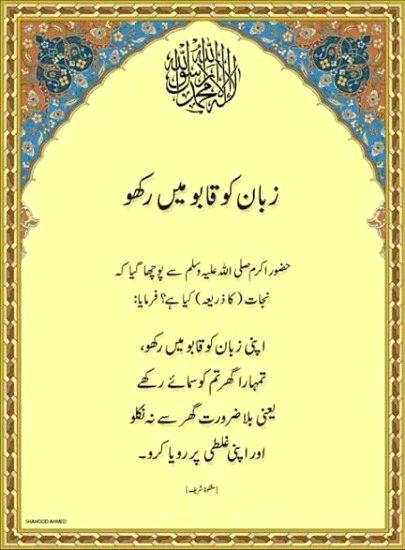 لا إله إلا الله محمد رسول الله
زبان کو قابو میں رکھو
حضور اکرم صلی اللہ علیہ وسلم سے پوچھا گیا کہ
نجات (کا ذریعہ) کیا ہے؟ فرمایا:
اپنی زبان کو قابو میں رکھو،
تمہارا گھر تم کو سمائے رکھے
یعنی بلا ضرورت گھر سے نہ نکلو
اور اپنی غلطی پر رویا کرو۔
(مشکوٰۃ شریف)
SHAHOOD AHMED